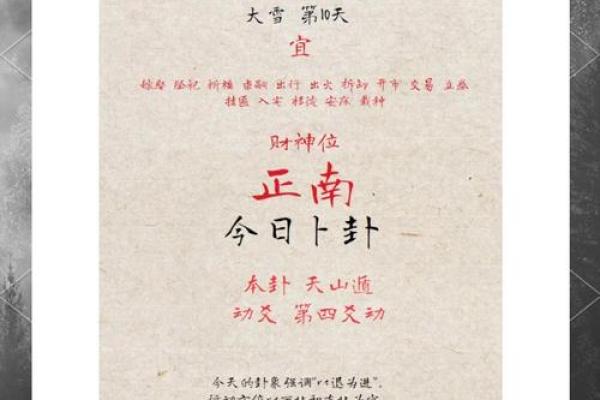 大雪 第10天
宜
嫁娶 祭祀 祈福 求嗣 出行 出火 拆卸 开市 交易 立券
挂匾 入宅 移徙 安床 栽种
财神位
正南
今日卜卦
本卦 天山遁
动爻 第四爻动
今天的卦象强调"以退为进"。